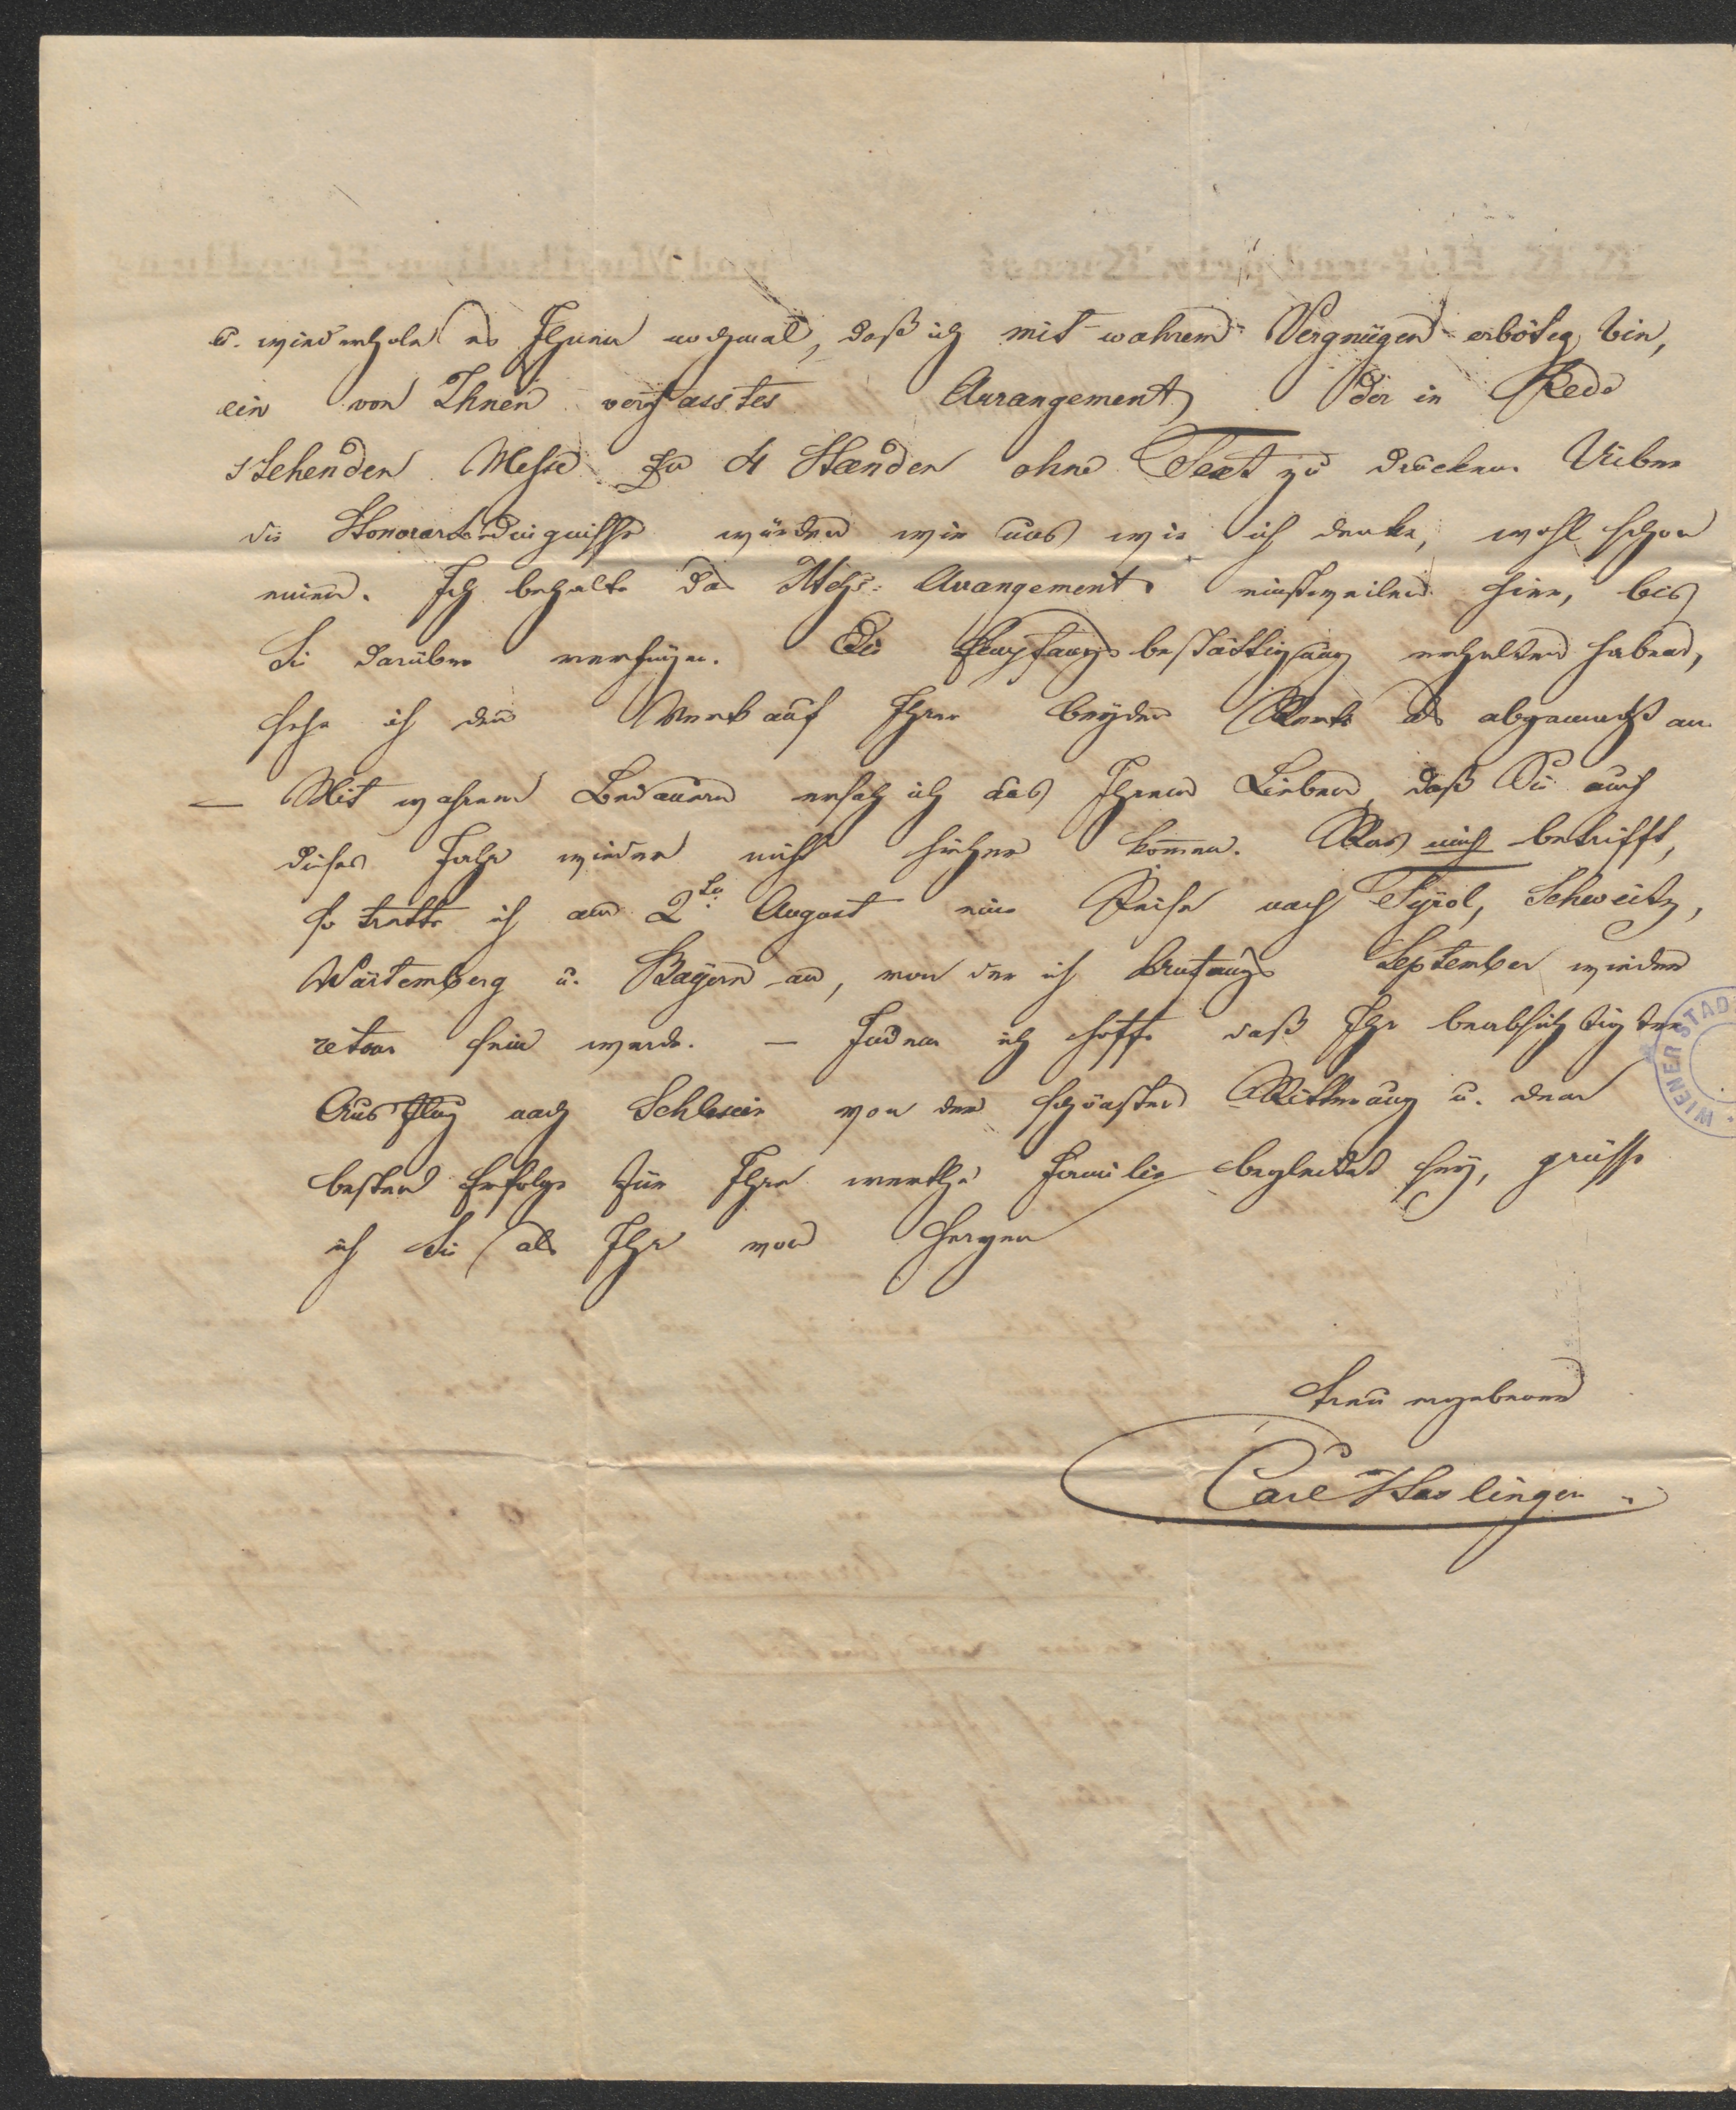 u. wiederhole es Ihnen nochmal, daß ich mit wahrem Vergnügen erbötig bin,
ein von Ihnen verfasstes Arrangement der in Rede
stehenden Messe zu 4 Händen ohne Text zu drucken. Ueber
die Honorarbedingnisse würden wir uns wie ich denke, wohl schon
einen. Ich behalte das Arrangement einstweilen hier, bis
Sie darüber verfügen. Die Empfangsbestättigung erhalten habend,
sehe ich den Verkauf Ihrer beyden Werke als abgemacht an.
— Mit wahrem Bedauern ersah ich aus Ihrem Lieben, daß Sie auch
dieses Jahr wieder nicht hieher kommen. Was mich betrifft,
so trette ich am 2ten August eine Reise nach Tyrol, Schweitz,
Würtemberg u. Bayern an, von der ich Anfangs September wieder
retour sein werde. — Indem ich hoffe daß Ihr beabsichtigter
Ausflug nach Schlesien von der schönsten Witterung u. dem
besten Erfolge für Ihre werthe Familie begleitet sey, grüsse
ich Sie als Ihr von Herzen
treu ergebener
Carl Haslinger
WIENER STAD